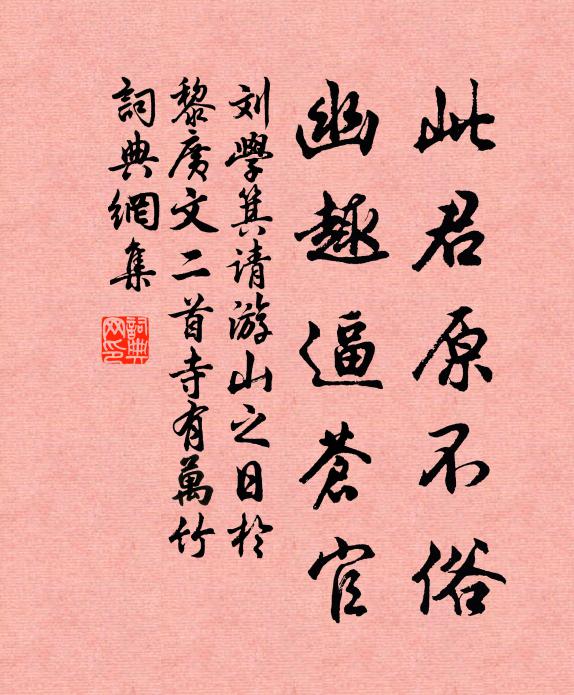 此君原不俗
幽趣逼苍官
刘學箕请游山之日於
黎廣文二首寺有萬竹
詞典網集
詞典网印